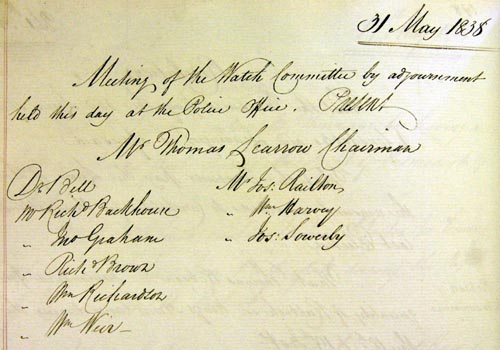 31 May 1838
Meeting of the Watch Committee by adjournment
held this day at the Police Office. Present
Mr Thomas Scarrow Chairman
Dr Bell
Mr Richd Backhouse
„ Jno Graham
„ Richd Brown
„ Wm Richardson
„ Wm Weir
Mr Jos: Railton
„ Wm Harvey
„ Jos: Sowerby